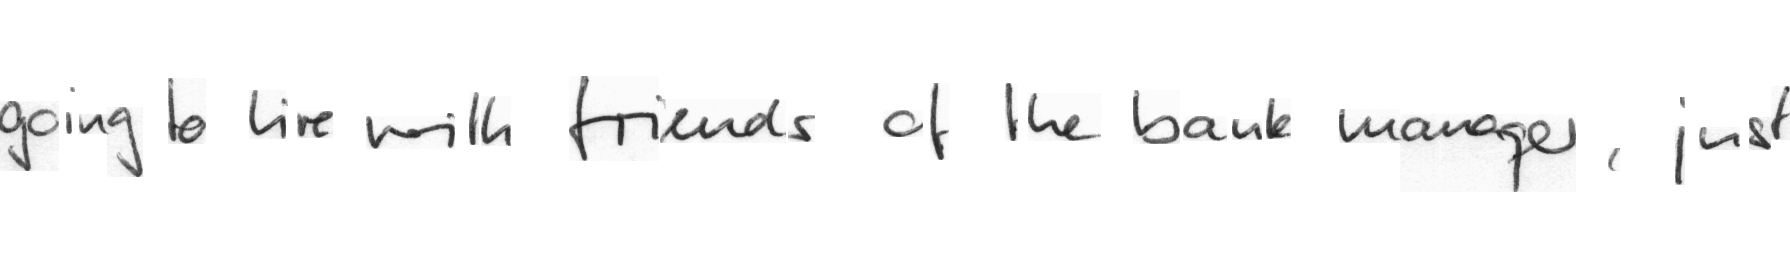 going to live with friends of the bank manager, just